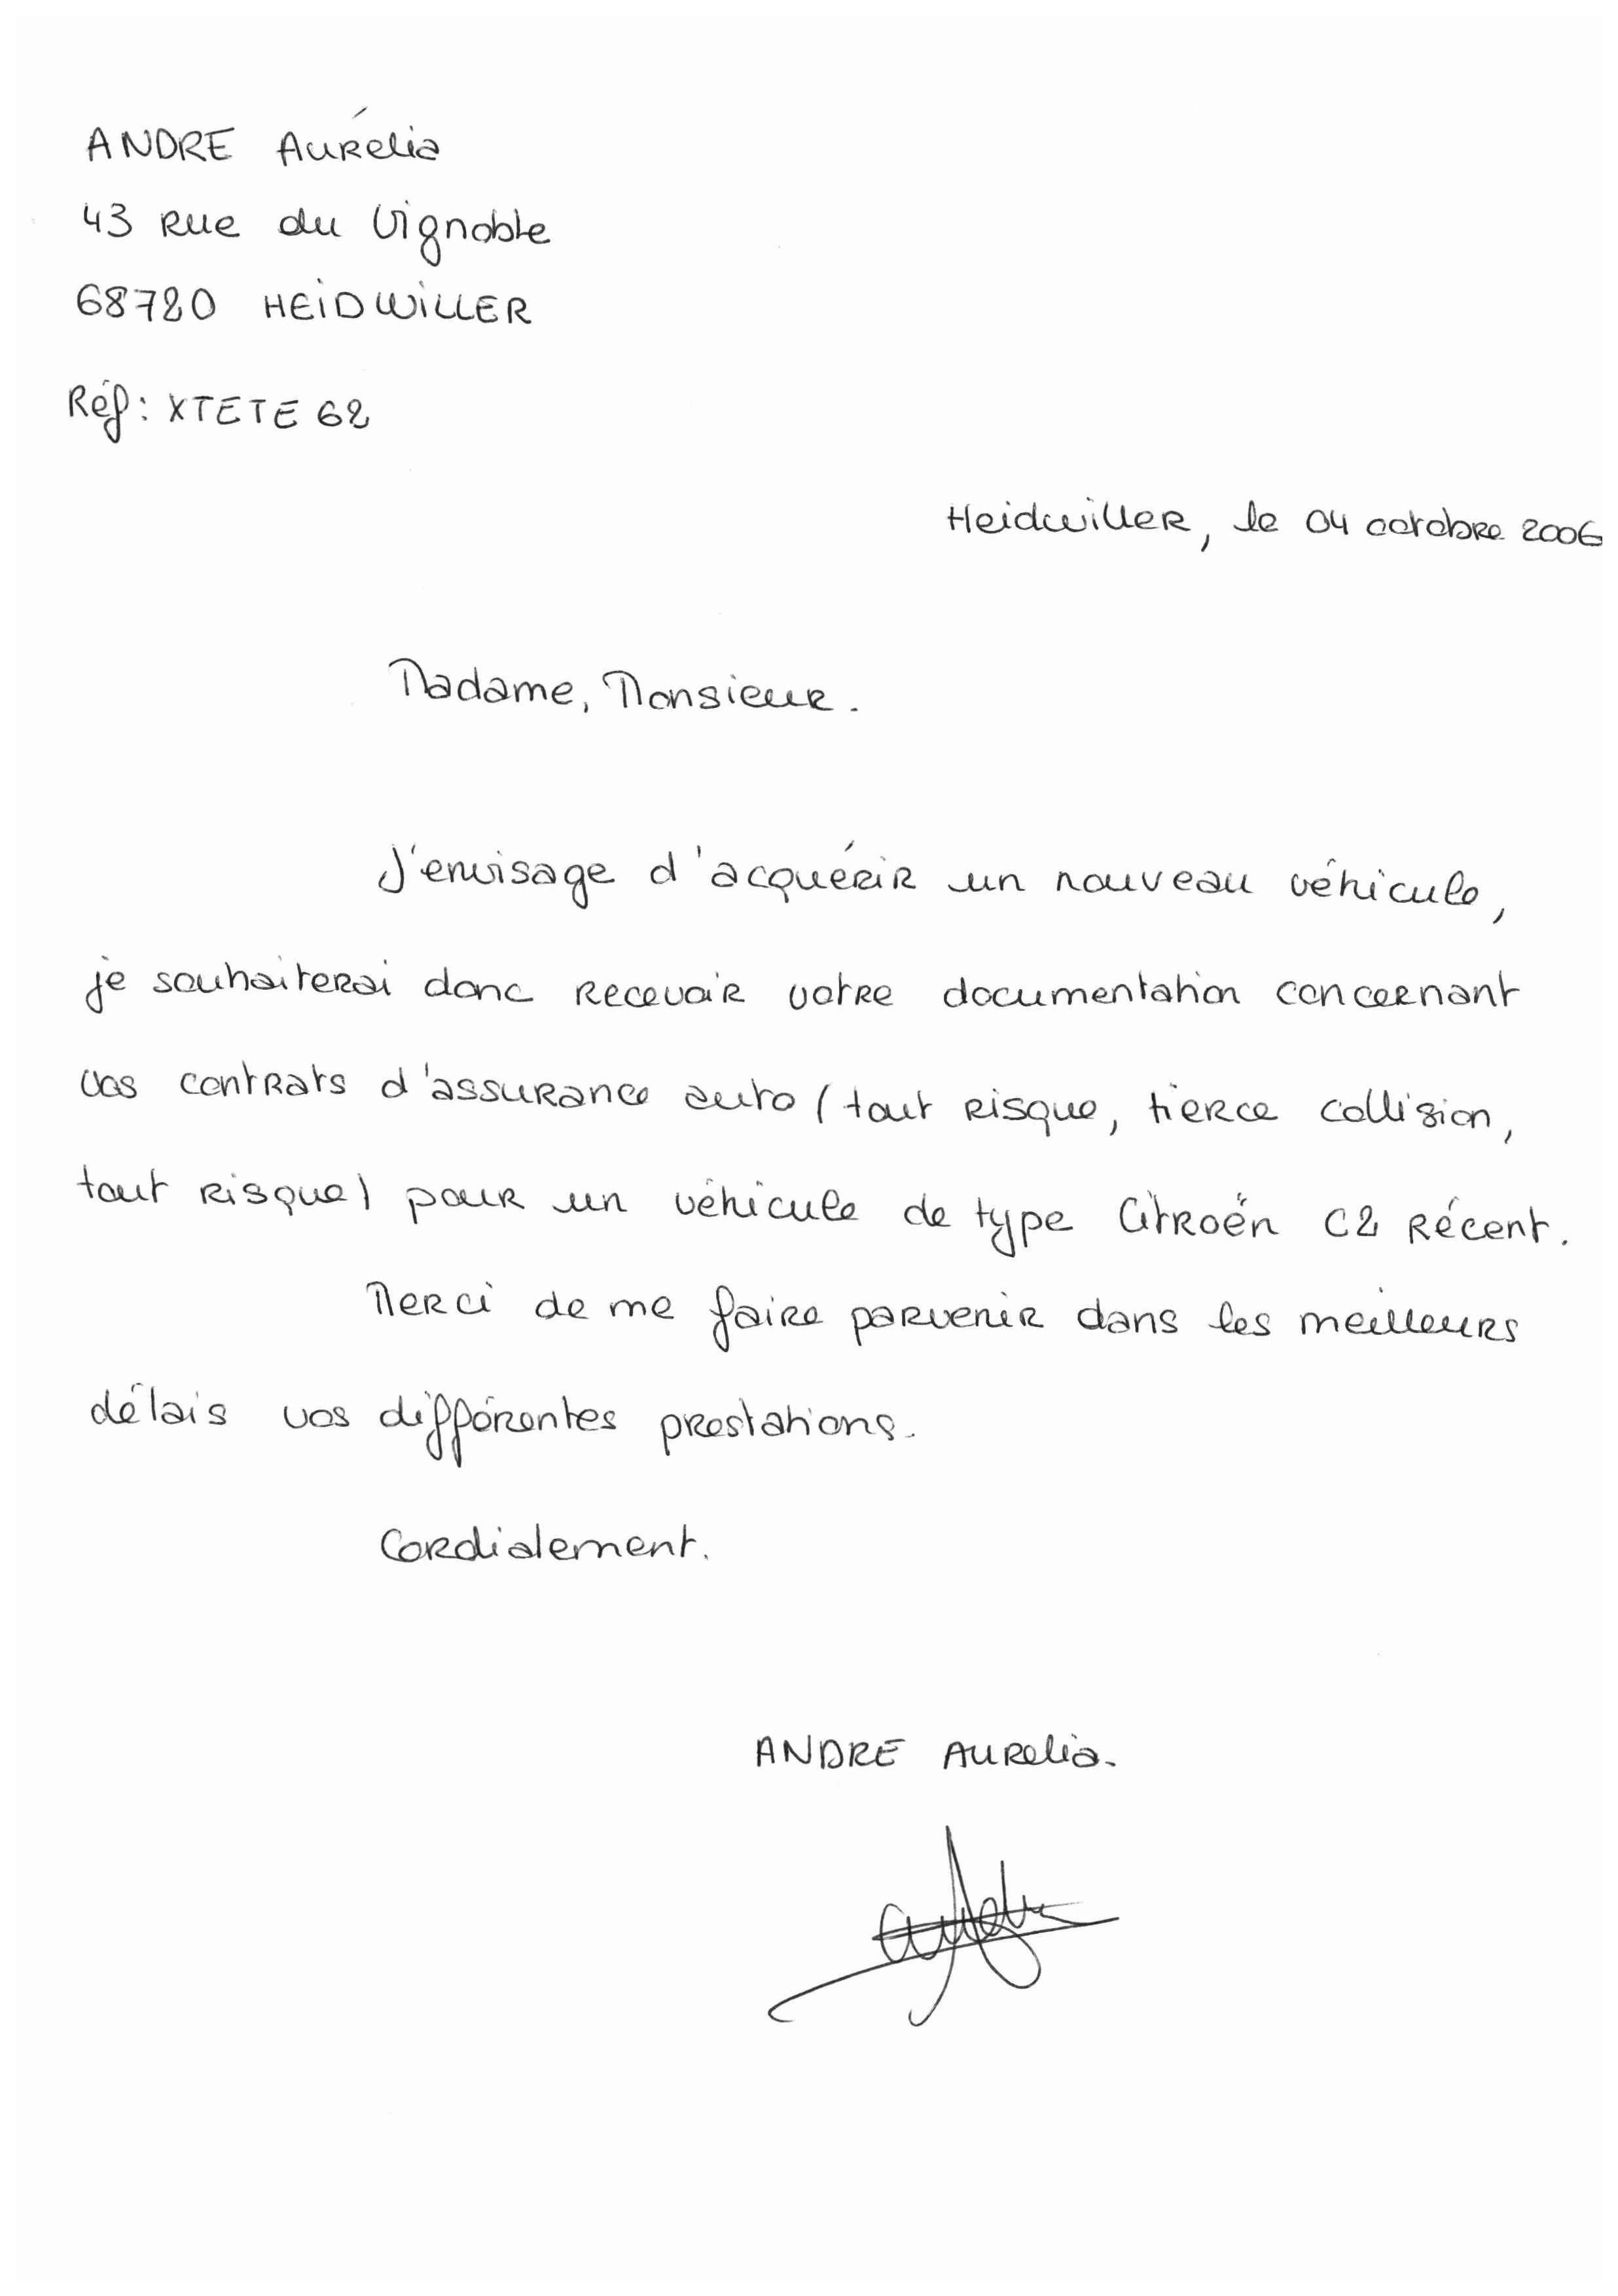 ANDRE Aurélia
43 Rue du Vignoble
68720 HEIDWILLER
Réf: XTETE 62
Heidwiller, le 04 octobre 2006
Madame, Monsieur.
J'envisage d'acquérir un nouveau véhicule,
je souhaiterai donc recevoir votre documentation concernant
vos contrats d'assurance auto (tout risque, tierce collision,
tout risque) pour un véhicule de type Citroën C2 récent.
Merci de me faire parvenir dans les meilleurs
délais vos différentes prestations.
Cordialement.
ANDRE Aurelia.